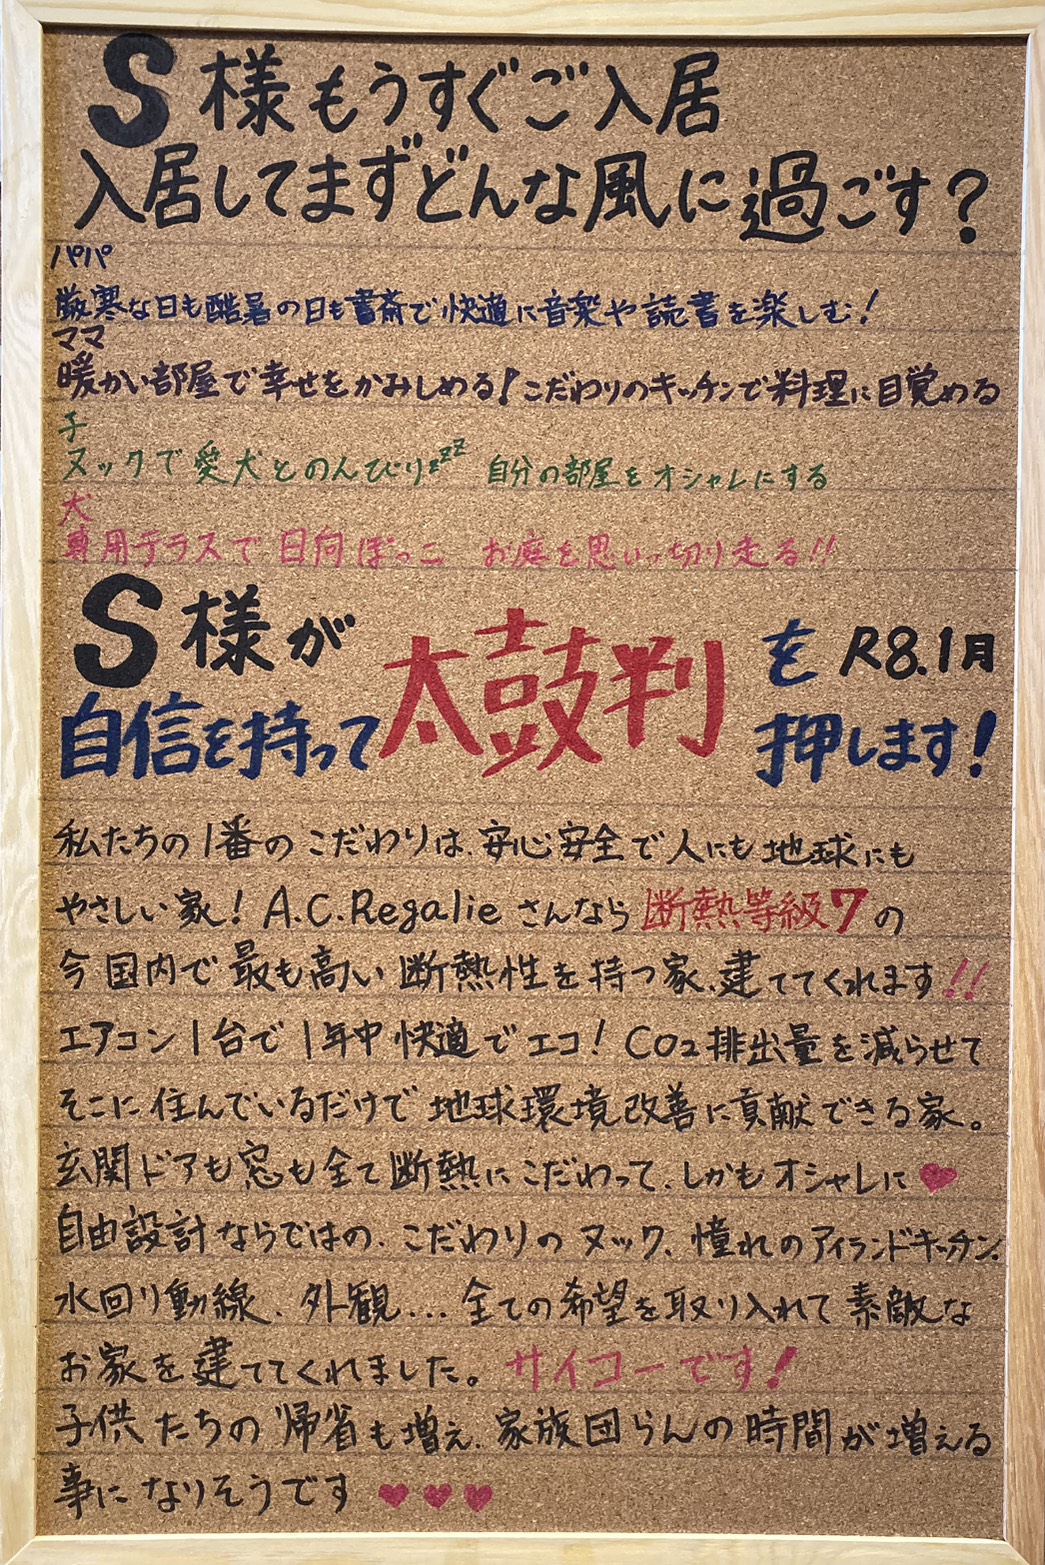 S様もうすぐご入居
入居してまずどんな風に過ごす？
パパ
厳寒な日も酷暑の日も書斎で快適に音楽や読書を楽しむ！
ママ
暖かい部屋で幸せをかみしめる！こだわりのキッチンで料理に目覚める
子
ヌックで愛犬とのんびりzzz 自分の部屋をオシャレにする
犬
専用テラスで日向ぼっこ お庭を思いッ切り走る!!
S様が
自信を持って太鼓判を R8.1月
押します！
私たちの1番のこだわりは、安心安全で人にも地球にも
やさしい家！A.C.Regalieさんなら断熱等級7の
今国内で最も高い断熱性を持つ家、建ててくれます!!
エアコン1台で1年中快適でエコ！CO2排出量を減らせて
そこに住んでいるだけで地球環境改善に貢献できる家。
玄関ドアも窓も全て断熱にこだわって、しかもオシャレに♥
自由設計ならではの、こだわりのヌック、憧れのアイランドキッチン、
水回り動線、外観....全ての希望を取り入れて素敵な
お家を建ててくれました。サイコーです！
子供たちの帰省も増え、家族団らんの時間が増える
事になりそうです♥♥♥